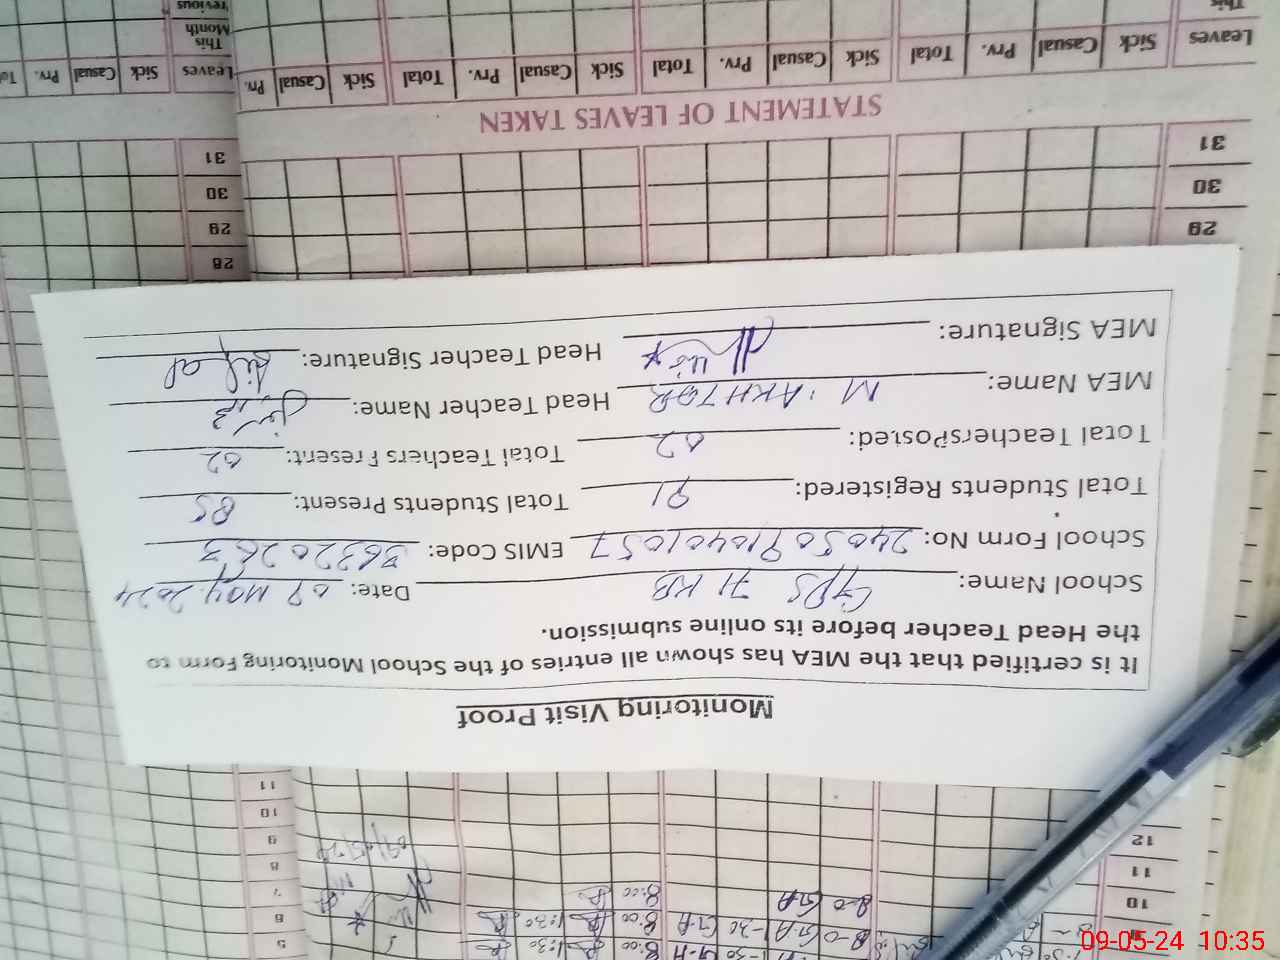 Monitoring Visit Proof
It is certified that the MEA has shown all entries of the School Monitoring Form to
the Head Teacher before its online submission.
School Name: GPS 71 KB Date: 09 May 2024
School Form No: 24050910401057 EMIS Code: 36320263
Total Students Registered: 91 Total Students Present: 85
Total Teachers Posted: 02 Total Teachers Present: 02
MEA Name: M. AKHTAR Head Teacher Name:
MEA Signature: Head Teacher Signature:
28
29 29
30 30
31 31
STATEMENT OF LEAVES TAKEN
Leaves Sick Casual Prv. Total Sick Casual Prv. Total Sick Casual Prv. Total Sick Casual Prv.
Leaves Sick Casual Prv.
This
Month
This
5
6
7
8
9
10
11
10
11
12
8:00 1:30
8:00 1:30
8:00
09-05-24 10:35